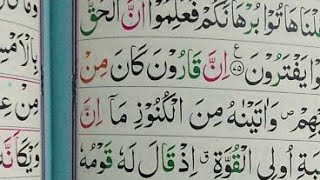 هَاتُوْا بُرْهَانَكُمْ فَعَلِمُوْٓا اَنَّ الْحَقَّ
يَفْتَرُوْنَ ۝٧٥ اِنَّ قَارُوْنَ كَانَ مِنْ
وَاٰتَيْنٰهُ مِنَ الْكُنُوْزِ مَآ اِنَّ
اُولِى الْقُوَّةِ ق اِذْ قَالَ لَهٗ قَوْمُهٗ
مِنْ